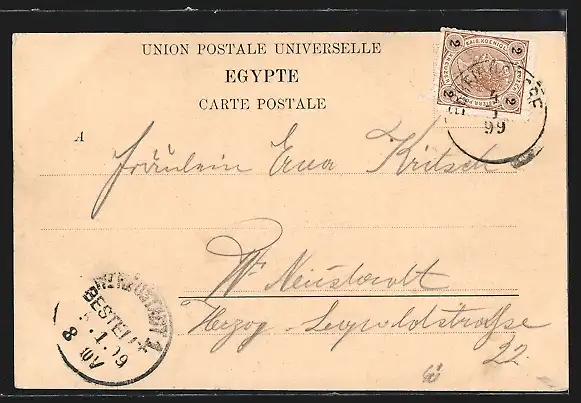 UNION POSTALE UNIVERSELLE
EGYPTE
CARTE POSTALE
A
Fräulein Erna Kritsch
Wr. Neustadt
Herzog Leopoldstrasse
22.
2 2
2 2
4
99
BESTELLT
1
8